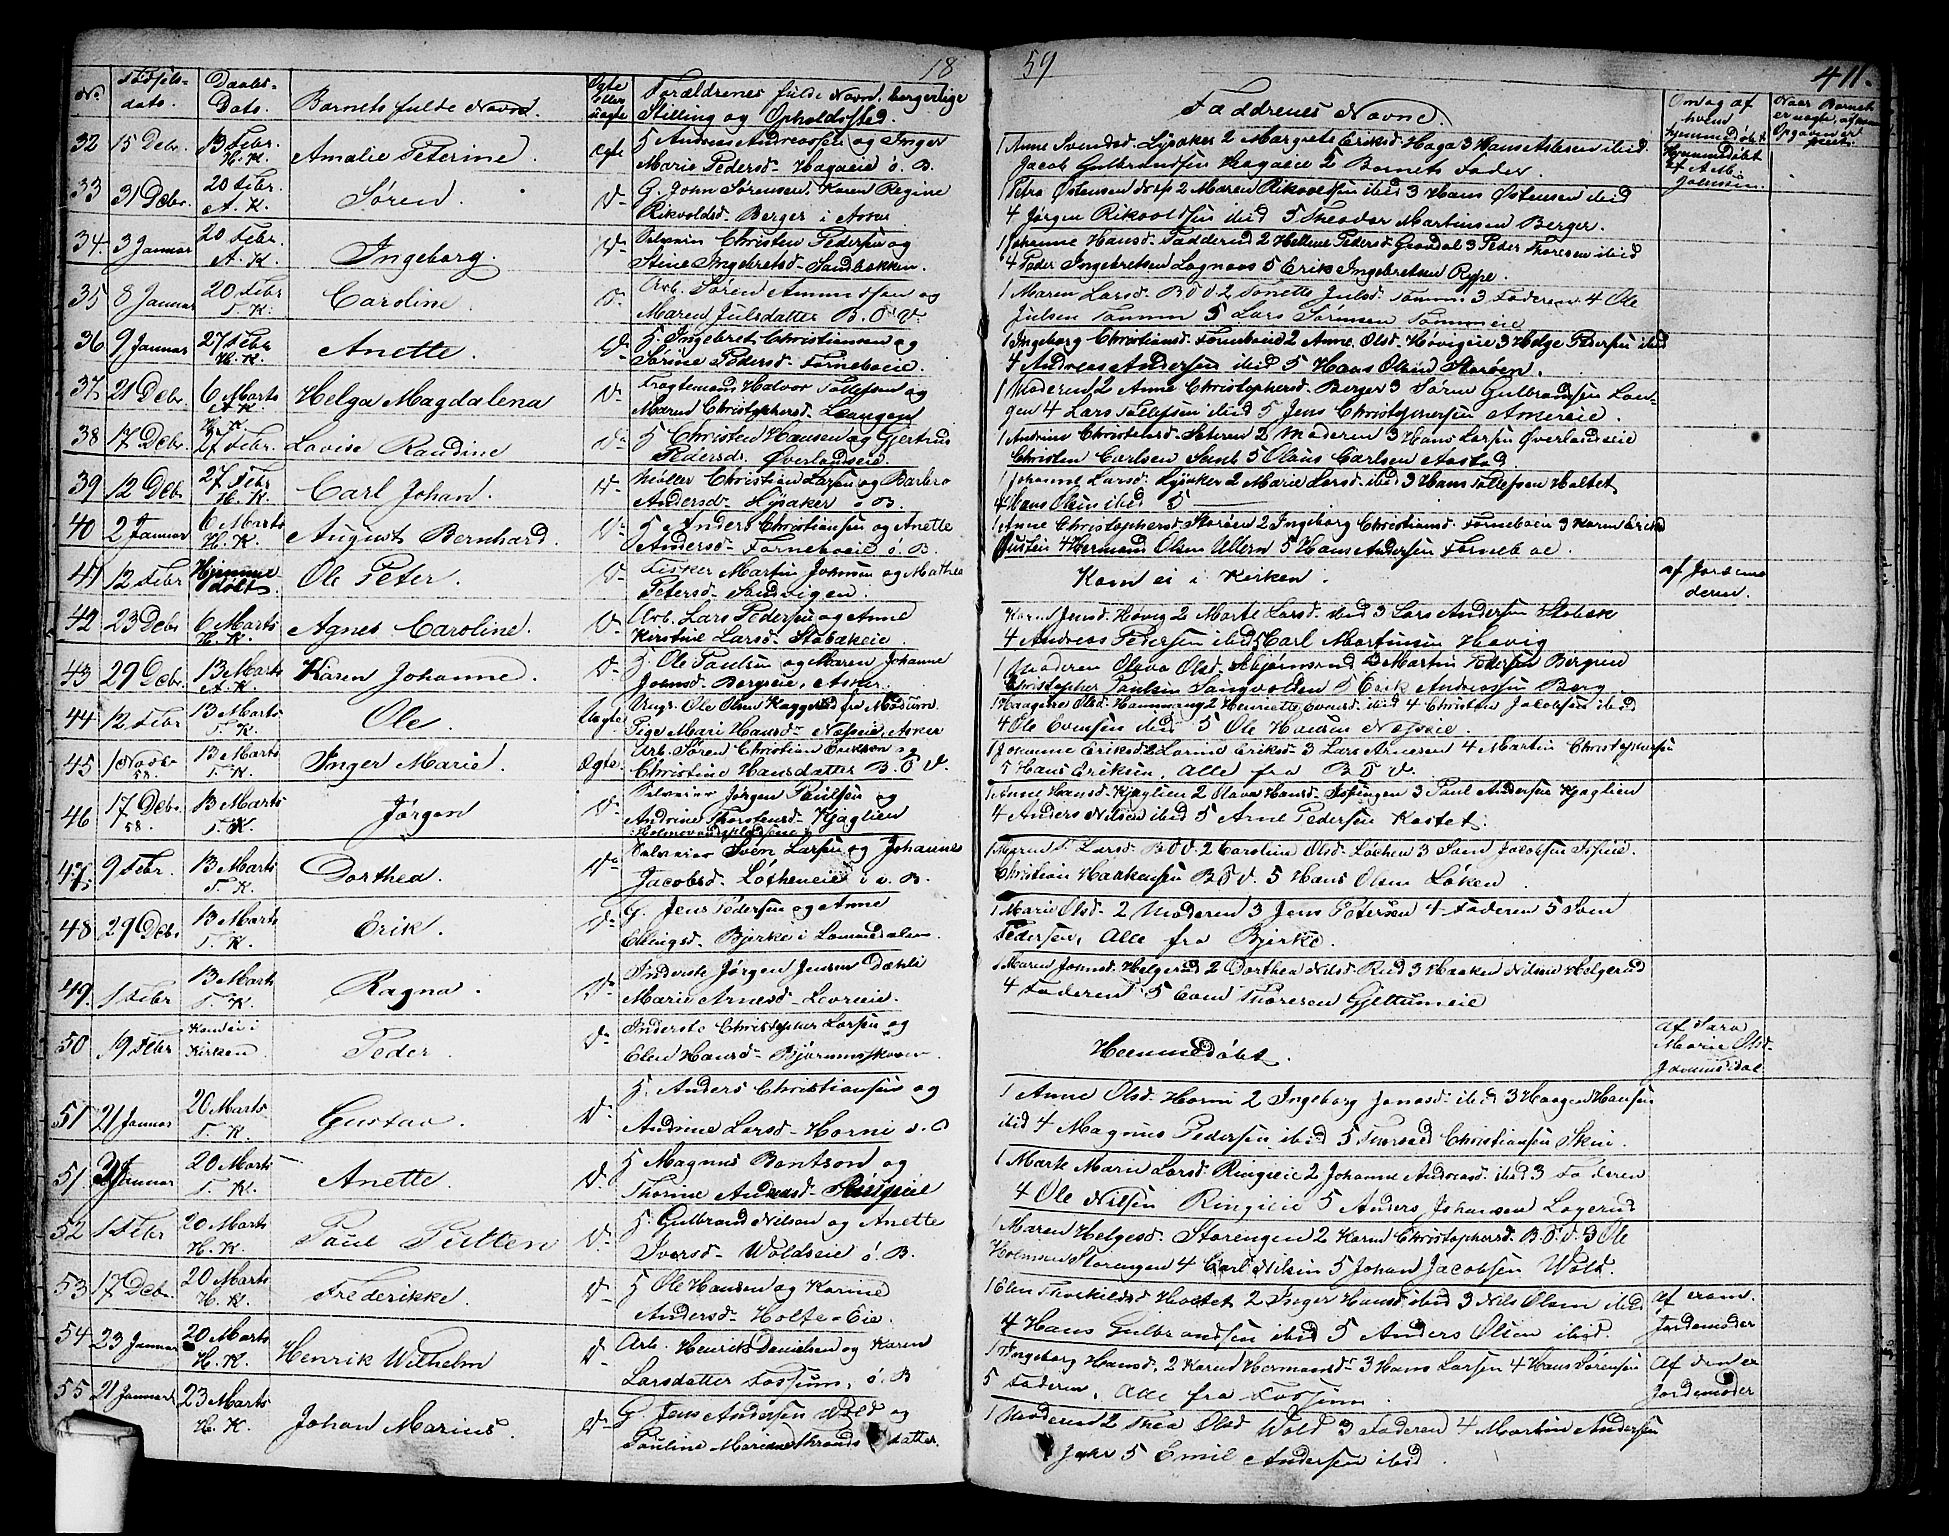 18
No.
Fødsels-
dato.
Daabs-
Dato.
Barnets fulde Navn.
Ægte
Eller
uægte
Forældrenes fulde Navn, borgerlige
Stilling og Opholdsted.
32 15 Debr. 13 Febr. H. K. Amalie Peterine. Ægte G. Andreas Andreassen og Inger
Marie Pedersd- Hagaeie ø. B.
33 31 Debr. 20 Febr. A. K. Søren. Do G. John Sørensen. Karen Regine
Rikvoldsd- Berger i Asker
34. 3 Januar 20 Febr. A. K. Ingeborg. Do Selveier Christen Pedersen og
Stine Ingebretsd- Sandbakken.
35 8 Januar 20 Febr T. K. Caroline. Do Arb. Søren Amundsen og
Maren Julsdatter B. O. V.
36 9 Januar 27 Febr H. K. Anette. Do H. Ingebret Christiansen og
Sørine Pedersd- Forneboeie.
37. 21 Debr. 6 Marts A. K. Helga Magdalena Do Fragtemand Halvor Tollefsen og
Maren Christophersd- Langen
38 17 Debr. H. K. 27 Febr. Lovise Randine Do H. Christen Hansen og Gjertrud
Pedersd. Øverlandseie.
39 12 Debr 27 Febr H. K. Carl Johan. Do Møller Christian Larsen og Barbro
Andersd- Lysaker ø. B.
40 2 Januar 6 Marts H. K. August Bernhard. Do H. Anders Christiansen og Anette
Andersd- Forneboeie ø. B.
41 12 Febr Hjemme døbt. Ole Peter. Do Fisker Martin Johnsen og Mathea
Petersd- Sandvigen.
42 23 Debr 6 Marts H. K. Agnes Caroline. Do Arb. Lars Pedersen og Anne
Kirstine Larsd- Stabækeie
43 29 Debr. 13 Marts A. K. Karen Johanne. Do H. Ole Paulsen og Maren Johanne
Johnsd- Bergseie, Asker.
44 12 Febr 13 Marts T. K. Ole. Uægte Ungk. Ole Olsen Kaggerud fra Modum.
Pige Mari Hansd- Næseie, Asker
45 1 Novbr 58. 13 Marts T. K. Inger Marie. Ægte Arb. Søren Christian Erikson og
Christine Hansdatter B. O. V.
46 17 Debr. 58. 13 Marts T. K. Jørgen Do Selveier Jørgen Paulsen og
Andrine Thorstensd- Kjaglien
47. 9 Febr. 13 Marts T. K. Dorthea. Do Selveier Sven Larsen og Johanne
Jacobsd- Løkeneie i v. B.
48 29 Debr. 13 Marts T. K. Erik. Do G. Jens Pedersen og Anne
Ellingsd- Bjerke i Lommedalen
49. 1 Febr 13 Marts T. K. Ragna. Do Inderste Jørgen Jensen Dæhli
Marie Arnesd- Levreeie.
50 19 Febr Kom ei i Kirken. Peder. Do Inderste Christopher Larsen og
Elen Hansd- Bjørumskoven
51 21 Januar 20 Marts T. K. Gustav. Do H. Anders Christiansen og
Andrine Larsd- Horni v. B
51. 31 Januar 20 Marts T. K. Anette. Do H. Magnus Bentsen og
Thorine Andersd- Ringieie
52 1 Febr 20 Marts H. K. Paul Petter Do H. Gulbrand Nilsen og Anette
Iversd- Woldseie ø. B.
53 17 Debr. 20 Marts H. K. Frederikke. Do H. Ole Hansen og Karine
Andersd- Holte-Eie
54 23 Januar 20 Marts H. K. Henrik Wilhelm Do Arb. Henrik Danielsen og Karen
Larsdatter Fossum, ø. B
55 21 Januar 23 Marts H. K. Johan Marius. Do G. Jens Andersen Wold og
Pauline Mariane Thronds datter.
59
411.
Faddrenes Navne.
Om og af
hvem
hjemmedøbt
Naar Barnet
er uægte,
1 Anne Svendsd- Lysaker 2 Margrete Eriksd- Haga 3 Hans Atlesen ibid.
Jacob Gulbrandsen Hagaeie 5 Barnets Fader.
Hjemmedøbt
1 Petra Østensen Nerp 2 Maren Rikvoldsen ibid 3 Hans Østensen ibid
4 Jørgen Rikvoldsen ibid 5 Theodor Martinsen Berger.
1 Johanne Hansd- Fadderud 2 Hellene Pedersd- Grøndal 3 Peder Thoresen ibid
4 Peder Ingebretsen Lognaas 5 Erik Ingebretsen Rype.
1 Maren Larsd- B O V 2 Tonette Julsd- Tømm 3 Faderen 4 Ole
Julsen Tømm 5 Lars Sørensen Tømmeie
1 Ingeborg Christiansd- Forneboeid 2 Anne Olsd- Høvigeie 3 Helge Pedersen ibid
4 Andreas Andersen ibid 5 Hans Olsen Storøen.
1 Moderen 2 Anne Christophersd- Berger 3 Søren Gulbrandsen Lan-
gen 4 Lars Tollefsen ibid 5 Jens Christophersen Arneseie.
1 Andrine Christensd- Sæteren 2 Moderen 3 Hans Larsen Øverlandseie
Christen Carlsen Samb 5 Olaus Carlsen Aastad
1 Johanne Larsd- Lysaker 2 Marie Larsd- ibid 3 Hans Tollefsen Holtet
4 Hans Olsen ibid 5
1 Anne Christophersd- Storøen 2 Ingeborg Christiansd- Forneboeie 3 Karen Eriksd
4 Hermand Olsen Ullern 5 Hans Andersen Forneboe.
Kom ei i Kirken.
af Jordemo
deren.
Karen Jensd- Høvig 2 Marte Larsd- ibid 3 Lars Andersen Stabæk
4 Andreas Pedersen ibid 5 Carl Martinsen Høvig
1 Moderen Olava Olsd- Asbjørnsrud 3 Martin Pedersen Bergseie
Christopher Paulsen Sangvolden 5 Erik Andreassen Berg.
1 Haagine Olsd- Hammerang 2 Henriette Evensd- ibid 4 Christen Jacobsen ibid
4 Ole Evensen ibid 5 Ole Hansen Næseie.
1 Johanne Eriksd- 2 Lovine Eriksd- 3 Lars Arnesen 4 Martin Christophersen
5 Hans Eriksen, Alle fra B O V.
1 Anne Hansd- Kjaglien 2 Olava Hansd- 3 Paul Andersen Kjaglien
4 Anders Nilsen ibid 5 Arne Pedersen Kastet.
1 Maren Larsd- B O V 2 Caroline Olsd- Løken 3 Sam Jacobsen
Christian Haakensen B O V. 5 Hans Olsen Løken
1 Marie Olsd- 2 Moderen 3 Jens Petersen 4 Faderen 5 Sven
Pedersen, Alle fra Bjerke.
1 Maren Johnsd- Helgerud 2 Dorthea Nilsd- Rud 3 Haaken Nilsen Helgerud
4 Faderen 5 Even Thoresen Gjettumeie
Hjemmedøbt.
af Sara
Marie Olsd-
1 Anne Olsd- Horni 2 Ingeborg Jonasd- ibid 3 Haagen Hansen
ibid 4 Magnus Pedersen ibid 5 Thorvald Christiansen Skui.
1 Marte Marie Larsd- Ringieie 2 Johanne Andreasd- ibid 3 Faderen
4 Ole Nilsen Ringieie 5 Anders Johansen Løgerud
1 Maren Helgesd- Storengen 2 Karen Christophersd- B. O. V. 3 Ole
Holmsen Storengen 4 Carl Nilsen 5 Johan Jacobsen Wold.
1 Elen Thorkildsd Holtet 2 Inger Hansd- ibid 3 Nils Olsen ibid
4 Hans Gulbrandsen ibid 5 Anders Olsen ibid.
af exam.
Jordemoder
1 Ingeborg Hansd- 2 Karen Hermansd- 3 Hans Larsen 4 Hans Sørensen
5 Faderen, Alle fra Fossum.
af den ex
Jordemoder
1 Moderen 2 Thea Olsd Wold 3 Faderen 4 Martin Andersen
Jahr 5 Emil Andersen ibid